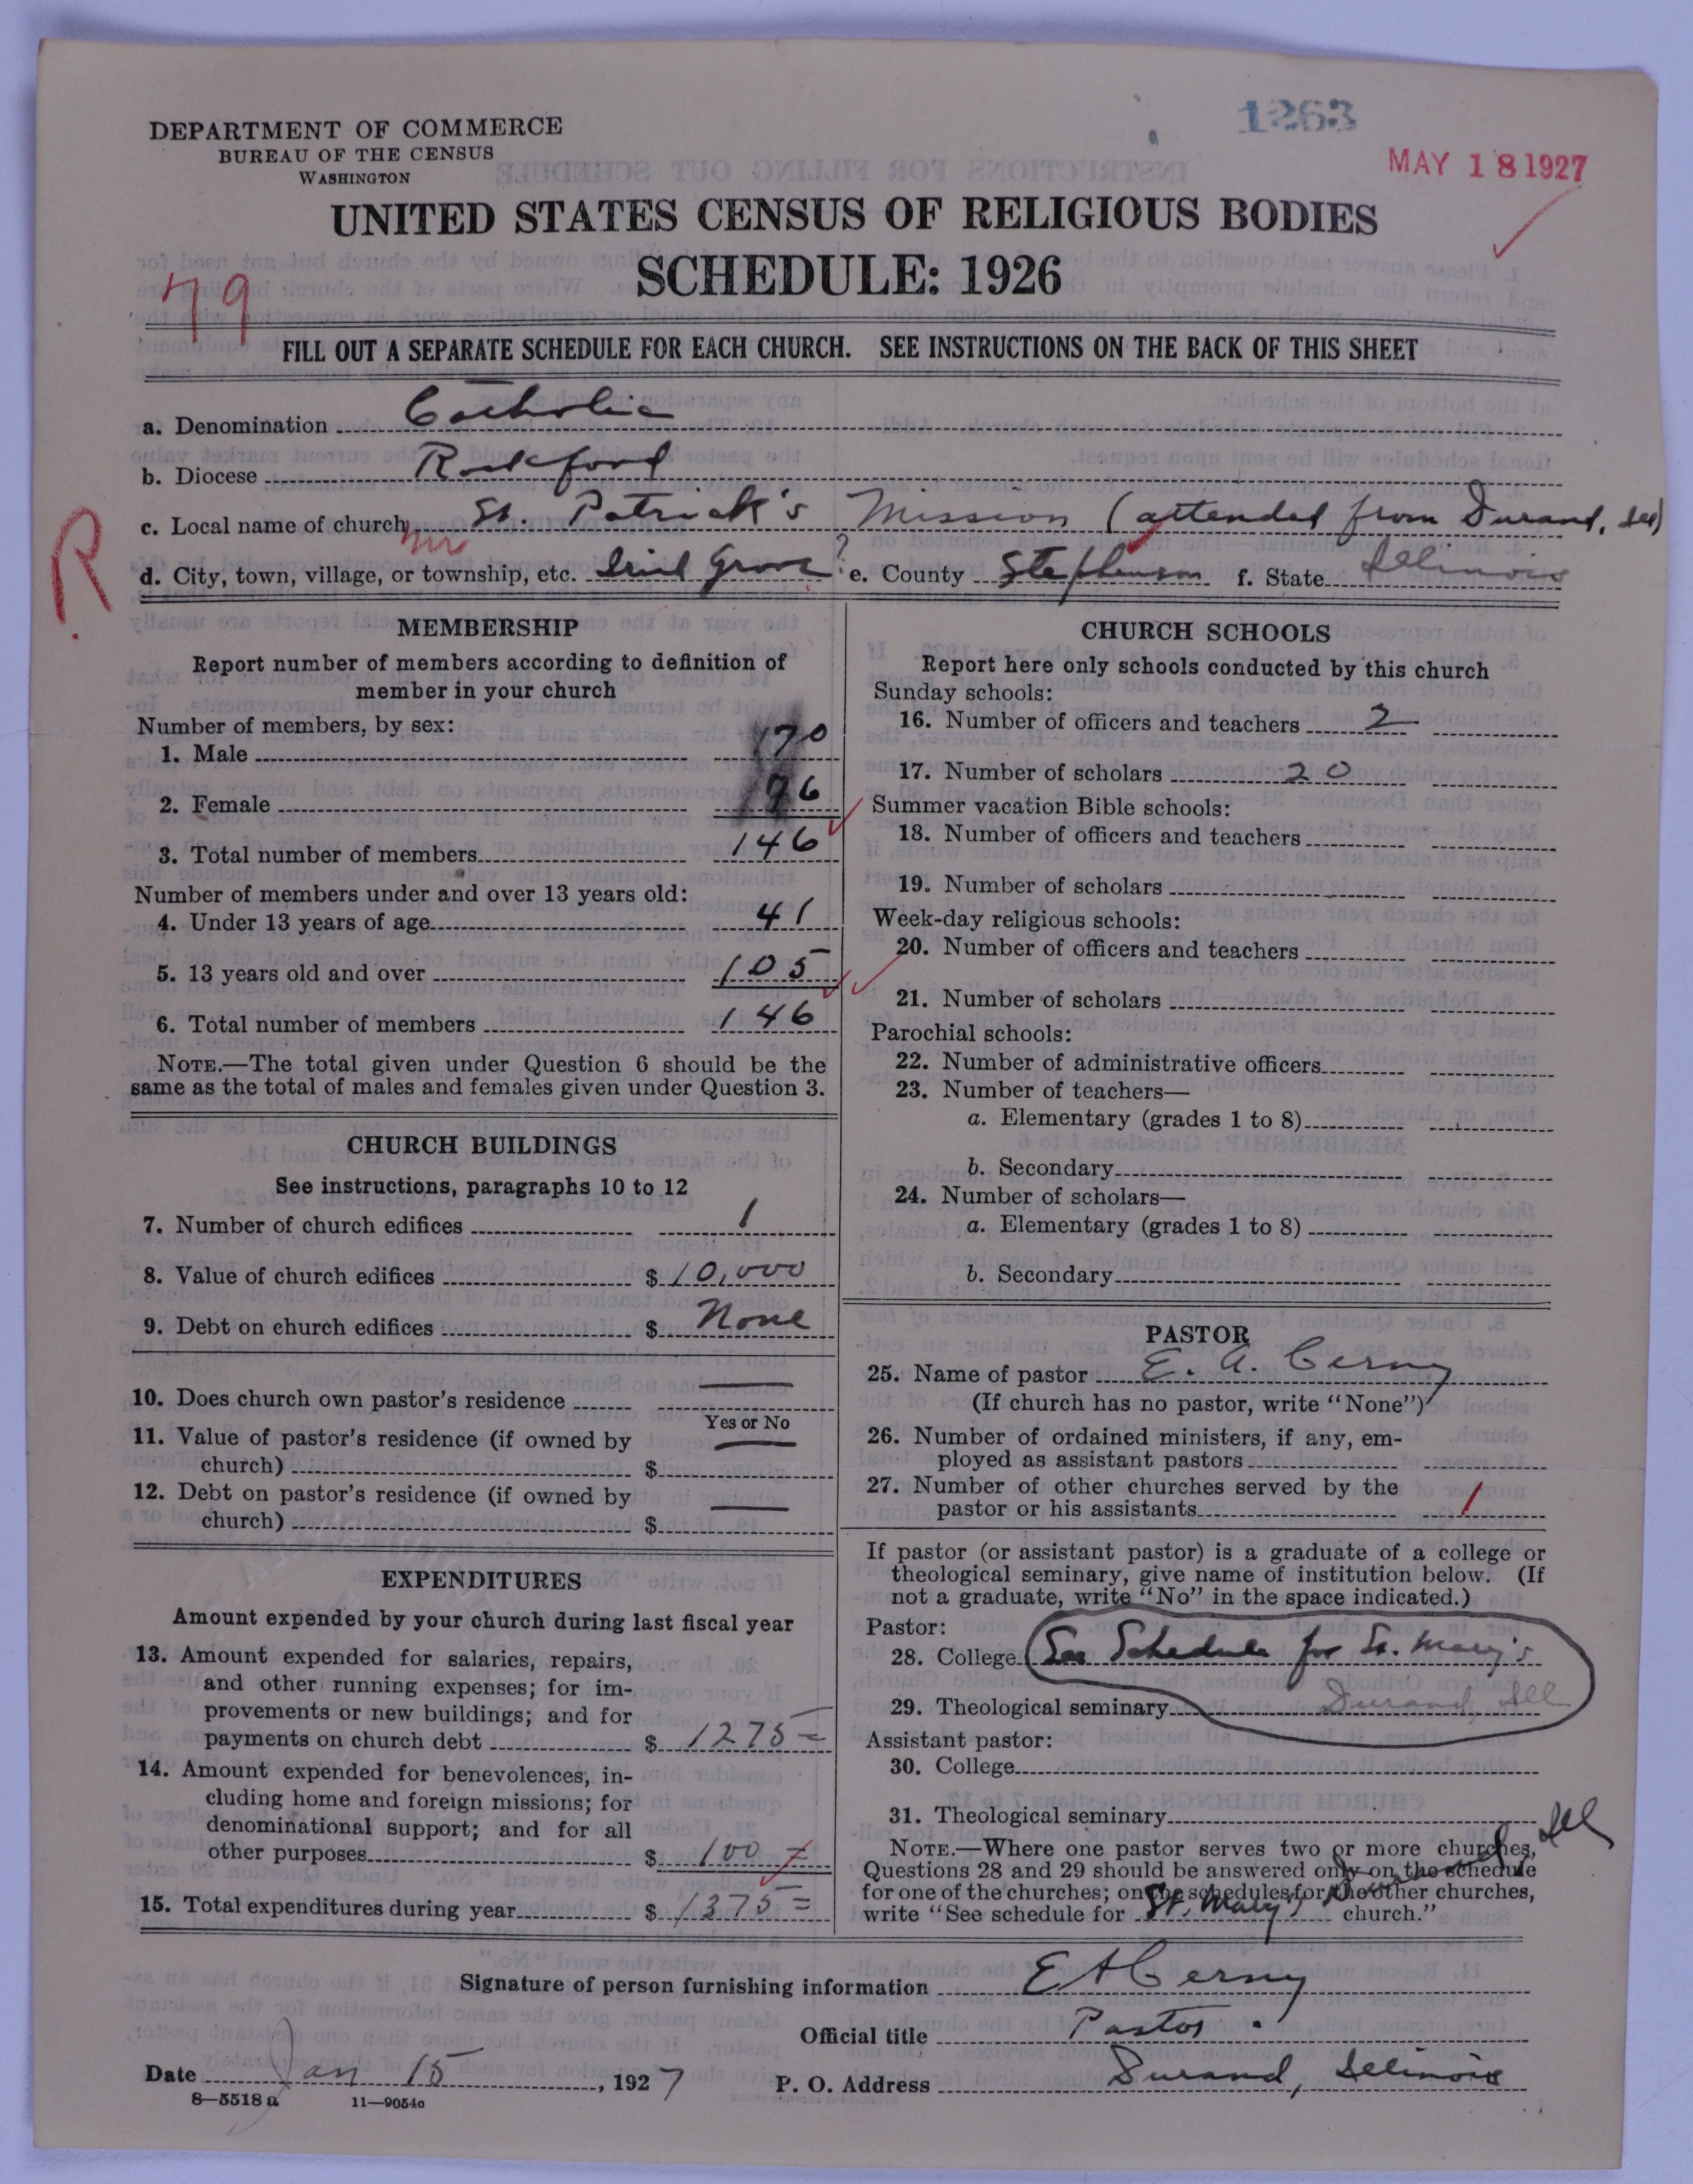 1263
MAY 18 1927
DEPARTMENT OF COMMERCE
BUREAU OF THE CENSUS
WASHINGTON
UNITED STATES CENSUS OF RELIGIOUS BODIES
SCHEDULE: 1926
79
FILL OUT A SEPARATE SCHEDULE FOR EACH CHURCH. SEE INSTRUCTIONS ON THE BACK OF THIS SHEET
a. Denomination Catholic
b. Diocese Rockford
R
c. Local name of church St. Patrick's Mission (attended from Durand, Ill)
d. City, town, village, or township, etc. Irish Grove ? e. County Stephenson f. State Illinois
MEMBERSHIP
Report number of members according to definition of
member in your church
Number of members, by sex:
1. Male 70
2. Female 76
3. Total number of members 146
Number of members under and over 13 years old:
4. Under 13 years of age 41
5. 13 years old and over 105
6. Total number of members 146
NOTE.—The total given under Question 6 should be the
same as the total of males and females given under Question 3.
CHURCH BUILDINGS
See instructions, paragraphs 10 to 12
7. Number of church edifices 1
8. Value of church edifices $ 10,000
9. Debt on church edifices $ None
10. Does church own pastor's residence —
Yes or No
11. Value of pastor's residence (if owned by
church) $ —
12. Debt on pastor's residence (if owned by
church) $ —
EXPENDITURES
Amount expended by your church during last fiscal year
13. Amount expended for salaries, repairs,
and other running expenses; for im-
provements or new buildings; and for
payments on church debt $ 1275 =
14. Amount expended for benevolences, in-
cluding home and foreign missions; for
denominational support; and for all
other purposes $ 100 =
15. Total expenditures during year $ 1375 =
CHURCH SCHOOLS
Report here only schools conducted by this church
Sunday schools:
16. Number of officers and teachers 2
17. Number of scholars 20
Summer vacation Bible schools:
18. Number of officers and teachers
19. Number of scholars
Week-day religious schools:
20. Number of officers and teachers
21. Number of scholars
Parochial schools:
22. Number of administrative officers
23. Number of teachers—
a. Elementary (grades 1 to 8)
b. Secondary
24. Number of scholars—
a. Elementary (grades 1 to 8)
b. Secondary
PASTOR
25. Name of pastor E. A. Cerny
(If church has no pastor, write "None")
26. Number of ordained ministers, if any, em-
ployed as assistant pastors
27. Number of other churches served by the
pastor or his assistants 1
If pastor (or assistant pastor) is a graduate of a college or
theological seminary, give name of institution below. (If
not a graduate, write "No" in the space indicated.)
Pastor:
28. College See Schedule for St. Mary's
29. Theological seminary Durand, Ill
Assistant pastor:
30. College
31. Theological seminary
NOTE.—Where one pastor serves two or more churches,
Questions 28 and 29 should be answered only on the schedule
for one of the churches; on the schedules for the other churches,
write "See schedule for St. Mary's Durand, Ill church."
Signature of person furnishing information E A Cerny
Official title Pastor.
Date Jan 15, 1927 P. O. Address Durand, Illinois
8—5518 a 11—9054c